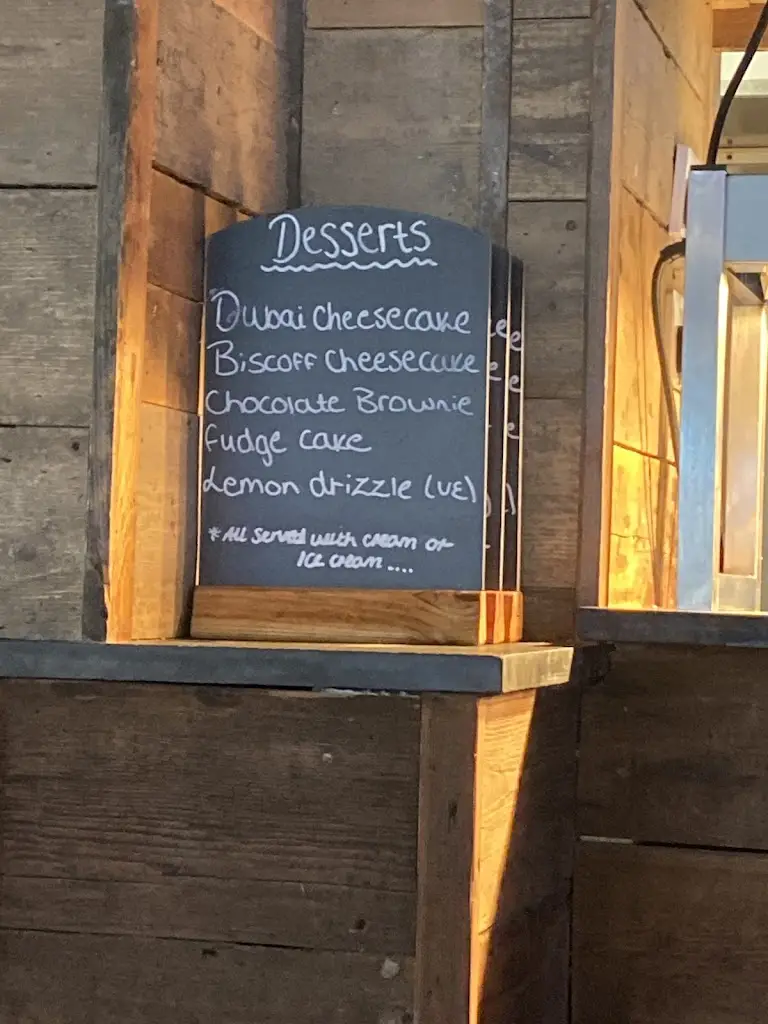 Desserts
Dubai Cheesecake
Biscoff Cheesecake
Chocolate Brownie
fudge cake
Lemon drizzle (VE)
*All Served with cream or
Ice cream ....